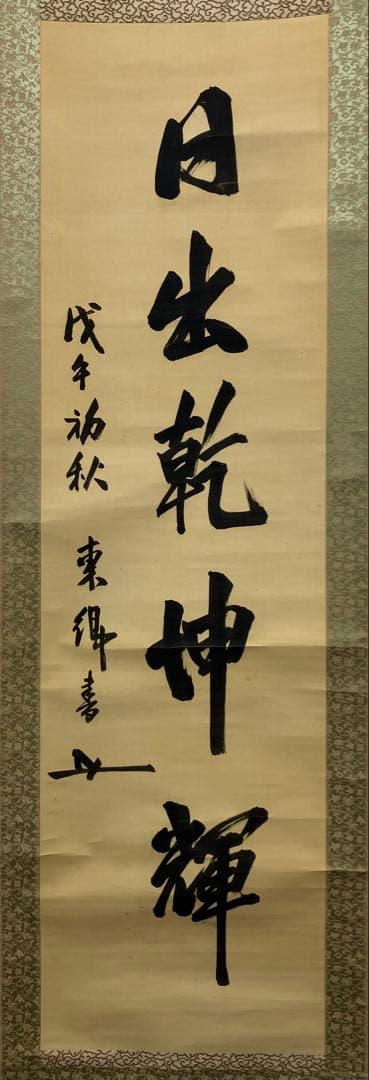 日出乾坤輝
戊午初秋 東 書